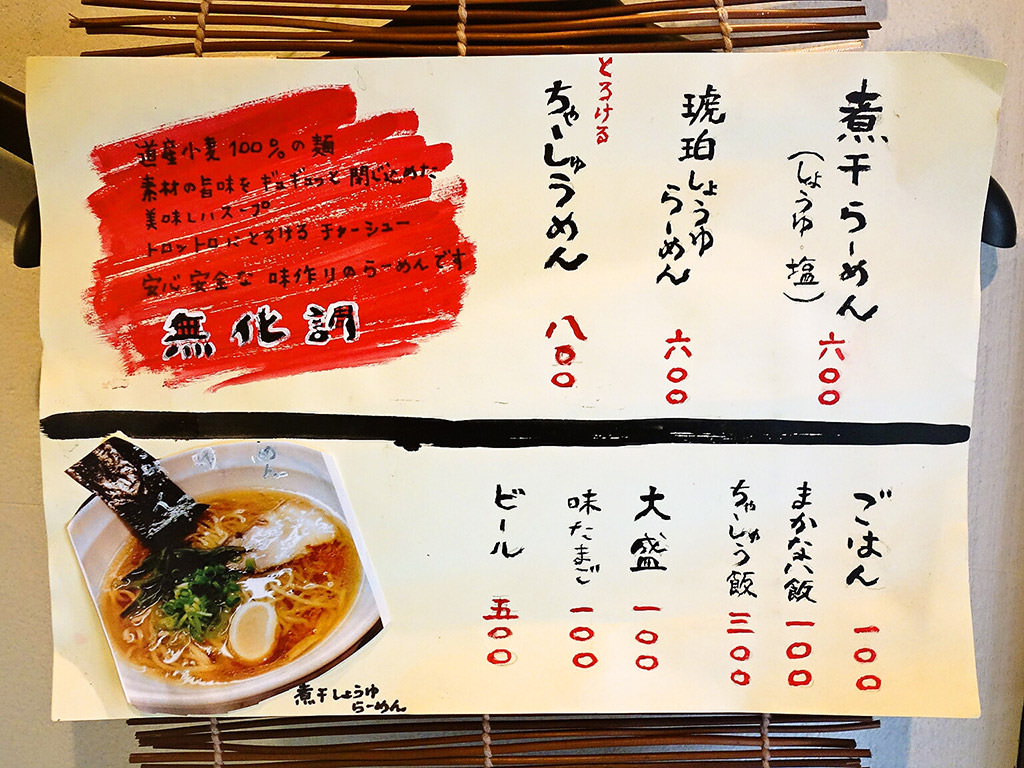 煮干らーめん
(しょうゆ・塩)
六〇〇
琥珀しょうゆ
らーめん
六〇〇
とろける
ちゃーしゅうめん
八〇〇
道産小麦100%の麺
素材の旨味をギュギュッと閉じ込めた
美味しいスープ
トロットロにとろけるチャーシュー
安心安全な味作りのらーめんです
無化調
ごはん
一〇〇
まかない飯
一〇〇
ちゃーしゅう飯
三〇〇
大盛
一〇〇
味たまご
一〇〇
ビール
五〇〇
煮干しょうゆ
らーめん